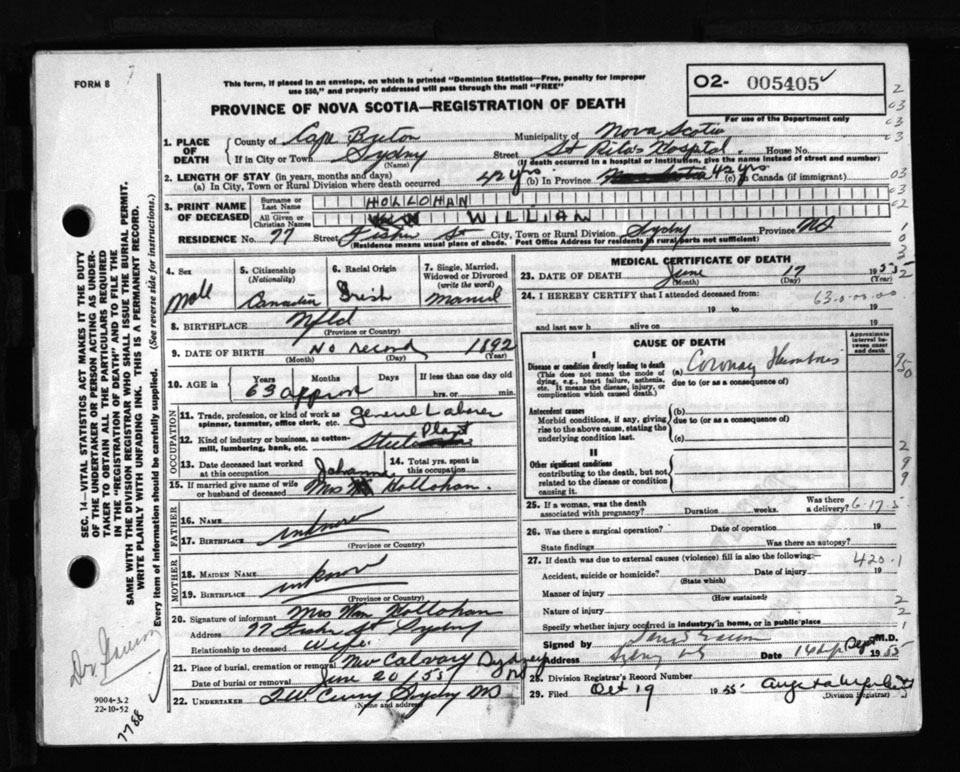 FORM 8
This form, if placed in an envelope, on which is printed "Dominion Statistics—Free, penalty for improper
use $50," and properly addressed will pass through the mail "FREE"
O2- 005405
For use of the Department only
PROVINCE OF NOVA SCOTIA—REGISTRATION OF DEATH
1. PLACE OF DEATH County of Cape Breton Municipality of Nova Scotia
If in City or Town Sydny (Name) Street St Rita's Hosptal. House No.
(If death occurred in a hospital or institution, give the name instead of street and number)
2. LENGTH OF STAY (in years, months and days)
(a) In City, Town or Rural Division where death occurred 42 yrs (b) In Province 42 yrs (c) In Canada (if immigrant)
3. PRINT NAME OF DECEASED Surname or Last Name HOLLOHAN
All Given or Christian Names WILLIAM
RESIDENCE No. 77 Street Fisher St City, Town or Rural Division Sydny Province NS
(Residence means usual place of abode. Post Office Address for residents in rural parts not sufficient)
4. Sex Male
5. Citizenship (Nationality) Canadian
6. Racial Origin Irish
7. Single, Married, Widowed or Divorced (write the word) Married
8. BIRTHPLACE Nfld
(Province or Country)
9. DATE OF BIRTH No record 1892
(Month) (Day) (Year)
10. AGE in Years Months Days If less than one day old
63 approx hrs. or min.
OCCUPATION
11. Trade, profession, or kind of work as spinner, teamster, office clerk, etc. general Laborer
12. Kind of industry or business, as cotton-mill, lumbering, bank, etc. Steel Plant
13. Date deceased last worked at this occupation
14. Total yrs. spent in this occupation
15. If married give name of wife or husband of deceased Johanna Mrs Hollohan.
FATHER
16. NAME
17. BIRTHPLACE unknown
(Province or Country)
MOTHER
18. MAIDEN NAME
19. BIRTHPLACE unknown
(Province or Country)
20. Signature of informant Mrs Wm Hollohan
Address 77 Fisher St Sydny
Relationship to deceased Wife
21. Place of burial, cremation or removal New Calvary Sydney NS
Date of burial or removal June 20/55
22. UNDERTAKER T.W. Curry Sydny NS
(Name and address)
MEDICAL CERTIFICATE OF DEATH
23. DATE OF DEATH June 17 1955
(Month) (Day) (Year)
24. I HEREBY CERTIFY that I attended deceased from:
63-0-00-00
19 to 19
and last saw h alive on 19
CAUSE OF DEATH
Approximate interval between onset and death
I
Disease or condition directly leading to death (a) Coronary Thrombosis
(This does not mean the mode of dying, e.g., heart failure, asthenia, etc. It means the disease, injury, or complication which caused death.)
due to (or as a consequence of)
Antecedent causes
Morbid conditions, if any, giving rise to the above cause, stating the underlying condition last.
(b)
due to (or as a consequence of)
(c)
II
Other significant conditions
contributing to the death, but not related to the disease or condition causing it.
25. If a woman, was the death associated with pregnancy? Duration weeks. Was there a delivery? 6-17-5
26. Was there a surgical operation? Date of operation 19
State findings Was there an autopsy?
27. If death was due to external causes (violence) fill in also the following: 420.1
Accident, suicide or homicide? Date of injury 19
(State which)
Manner of injury (How sustained)
Nature of injury
Specify whether injury occurred in industry, in home, or in public place
Signed by M.D.
Address Sydney NS Date 16 Sept 1955
28. Division Registrar's Record Number
29. Filed Oct 19 1955
(Division Registrar)
SEC. 14—VITAL STATISTICS ACT MAKES IT THE DUTY
OF THE UNDERTAKER OR PERSON ACTING AS UNDER-
TAKER TO OBTAIN ALL THE PARTICULARS REQUIRED
IN THE "REGISTRATION OF DEATH" AND TO FILE THE
SAME WITH THE DIVISION REGISTRAR WHO SHALL ISSUE THE BURIAL PERMIT.
WRITE PLAINLY WITH UNFADING INK. THIS IS A PERMANENT RECORD.
Every item of information should be carefully supplied. (See reverse side for instructions.)
9004-3.2
22-10-52
7788